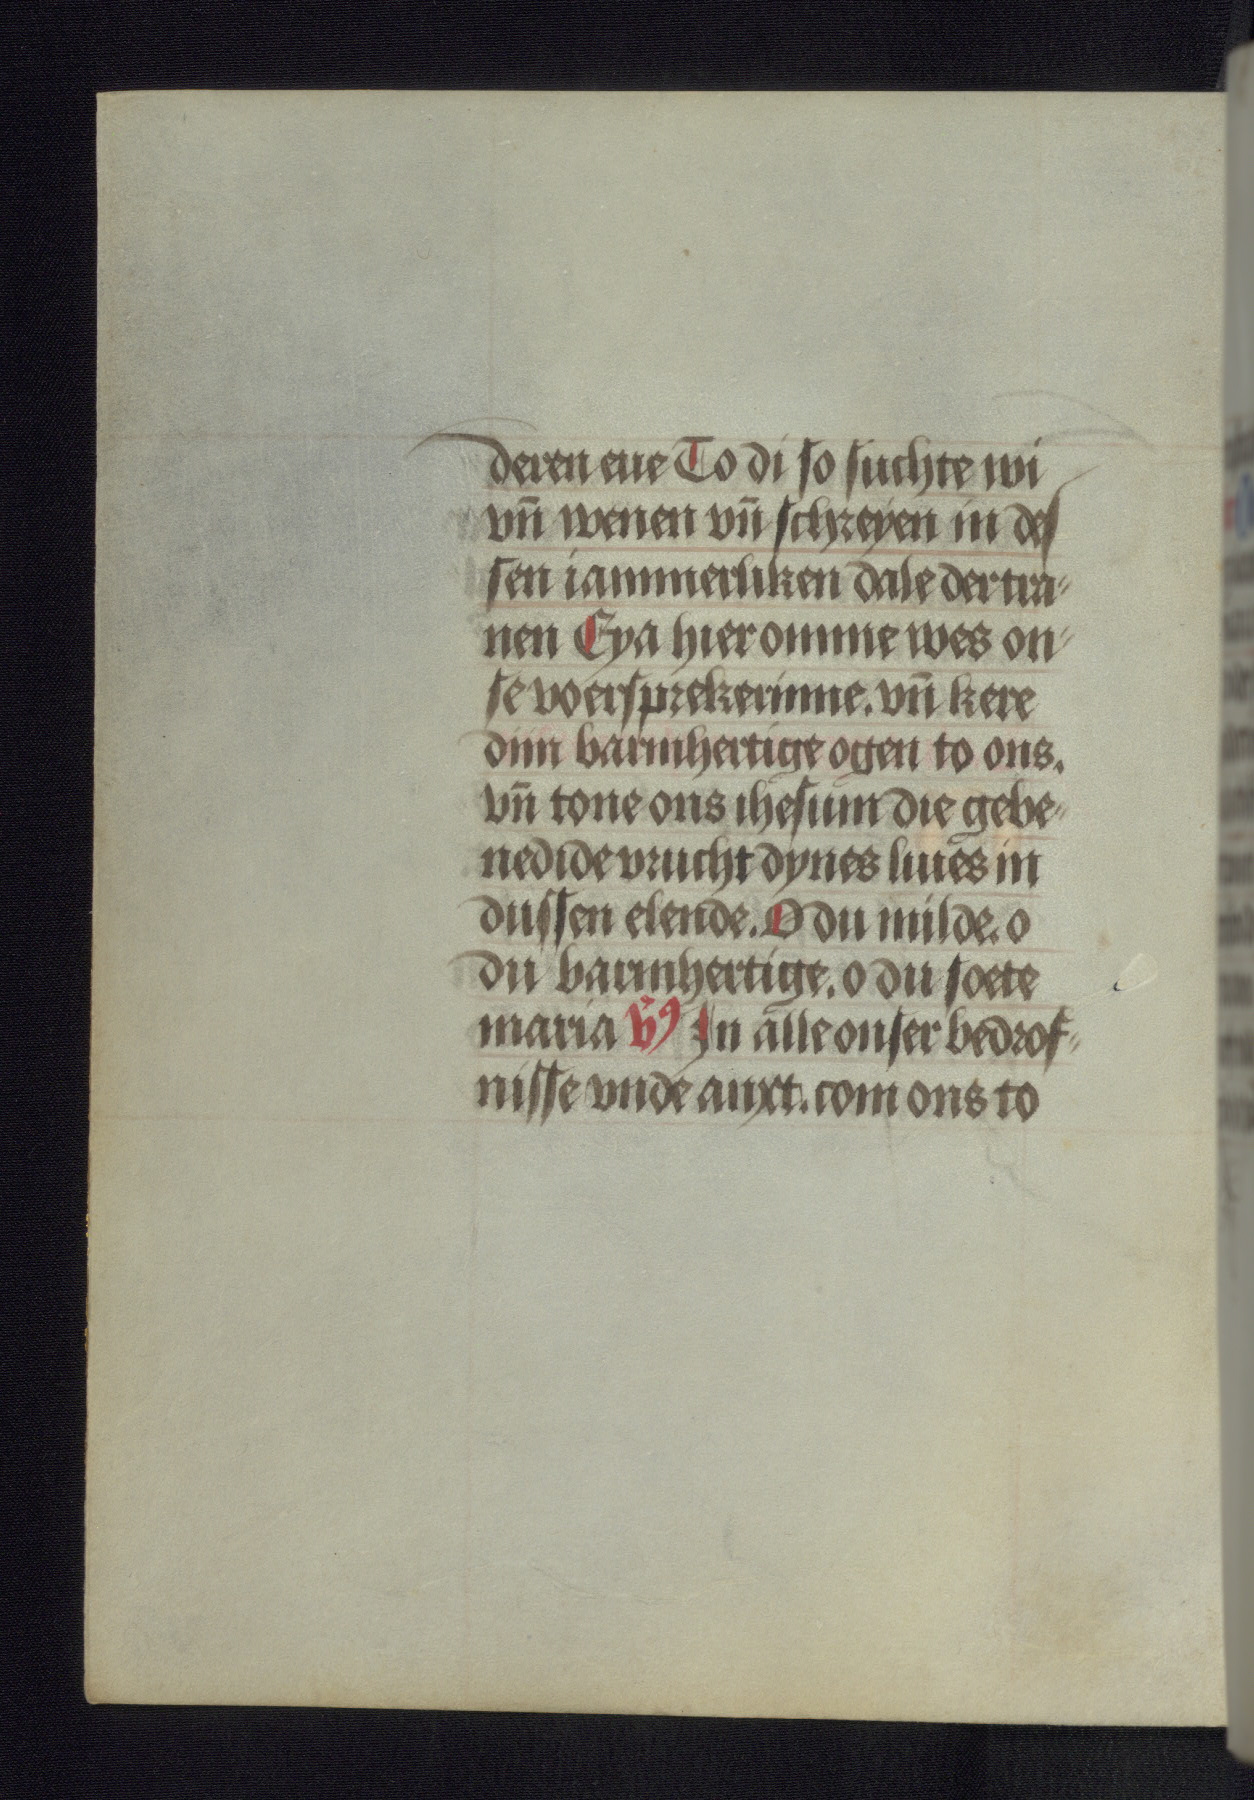 deren eue To di so suchte wi
vn̄ wenen vn̄ schreyen in des
sen iammerliken dale der tra-
nen Eya hier omme wes on-
se voersprekerinne. vn̄ kere
dinī barmhertige ogen to ons.
vn̄ tone ons ihesum die gebe-
nedide vrucht dynes liues in
dussen elende. O du milde. o
du barmhertige. o du soete
maria v̄9 In alle onser bedrof-
nisse vnde anxt. com ons to